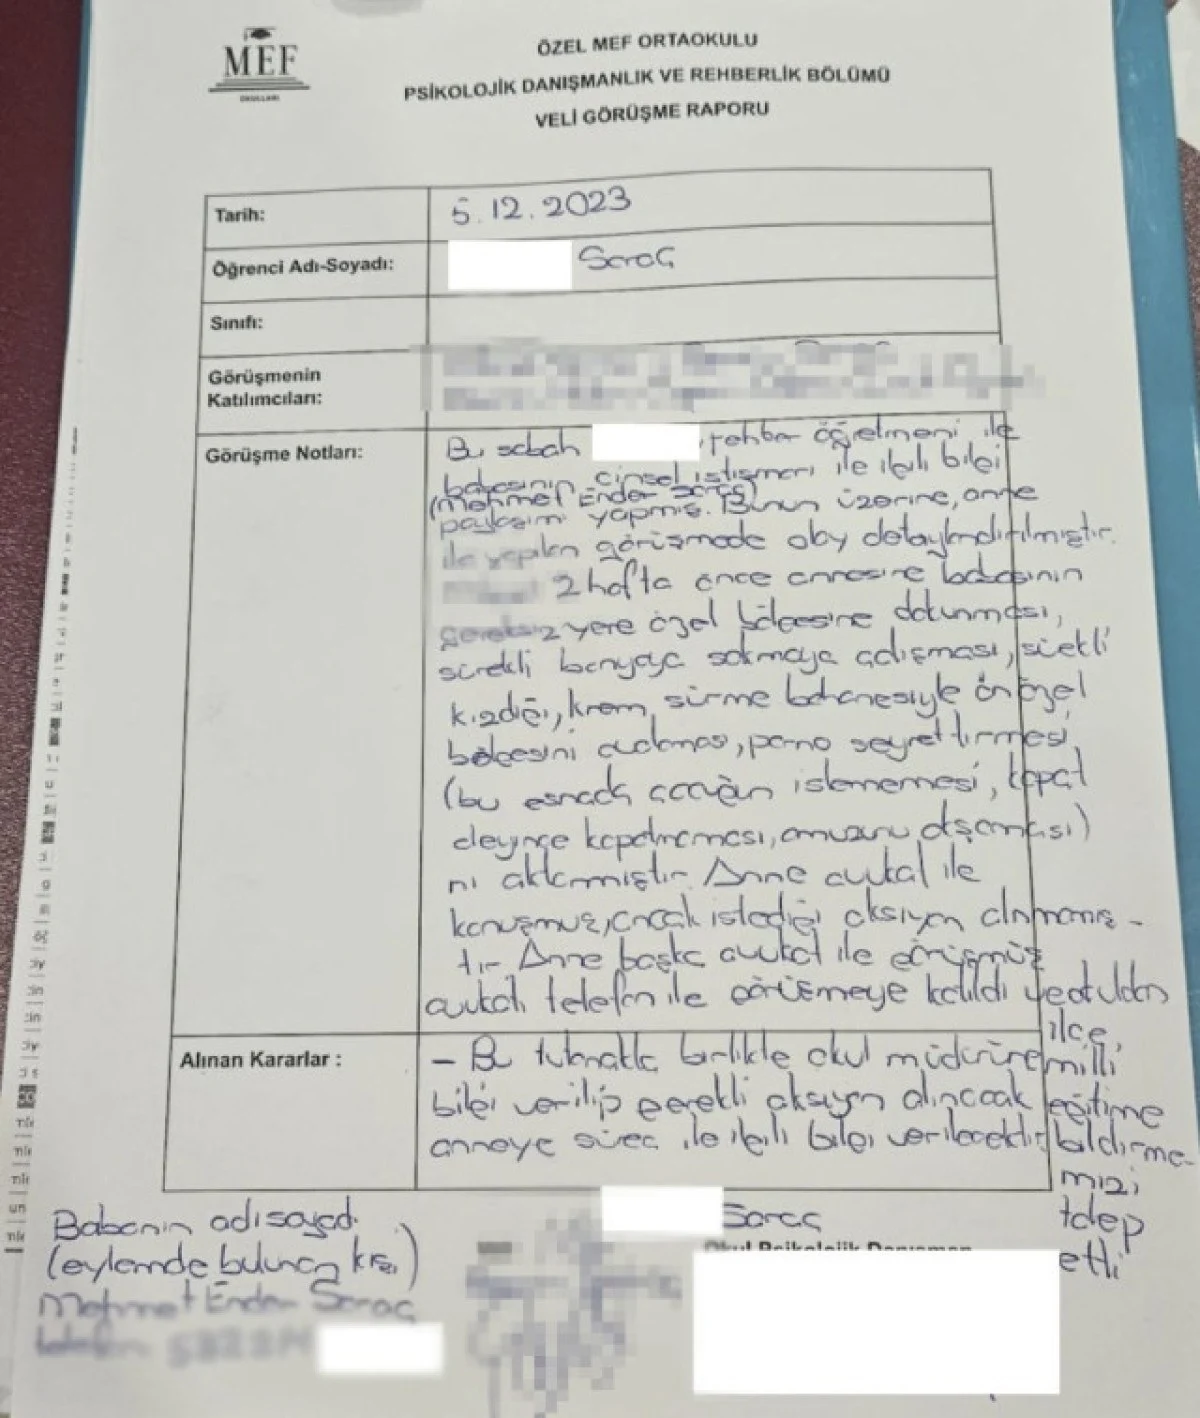 MEF
OKULLARI
ÖZEL MEF ORTAOKULU
PSİKOLOJİK DANIŞMANLIK VE REHBERLİK BÖLÜMÜ
VELİ GÖRÜŞME RAPORU
Tarih: 5.12.2023
Öğrenci Adı-Soyadı: Saraç
Sınıfı:
Görüşmenin
Katılımcıları:
Görüşme Notları: Bu sabah rehber öğretmeni ile
babasının cinsel istismarı ile ilgili bilgi
(Mehmet Ender Saraç)
paylaşımı yapmış. Bunun üzerine, anne
ile yapılan görüşmede olay detaylandırılmıştır.
2 hafta önce annesine babasının
gereksiz yere özel bölgesine dokunması,
sürekli banyoya sokmaya çalışması, sürekli
kızdığı, krem sürme bahanesiyle ön özel
bölgesini, porno seyrettirmesi
(bu esnada çocuğun istememesi, kapat
deyince kapatmaması,)
nı aktarmıştır. Anne avukat ile
konuşmuş, ancak istediği aksiyon alınmamış-
tır. Anne başka avukat ile görüşmüş
avukatı telefon ile görüşmeye katıldı ve okuldan
ilçe
milli
eğitime
bildirme-
mizi
talep
etti
Alınan Kararlar : - Bu tutanakla birlikte okul müdürüne
bilgi verilip gerekli aksiyon alınacak
anneye süreç ile ilgili bilgi verilecektir.
Babanın adı soyadı
(eylemde bulunan kişi)
Mehmet Ender Saraç
telefon
Saraç
Okul Psikolojik Danışman